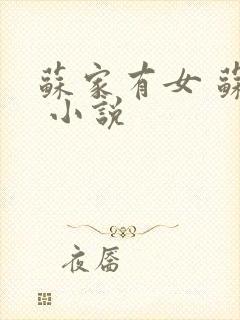 蘇家有女 蘇
小說
夜唇